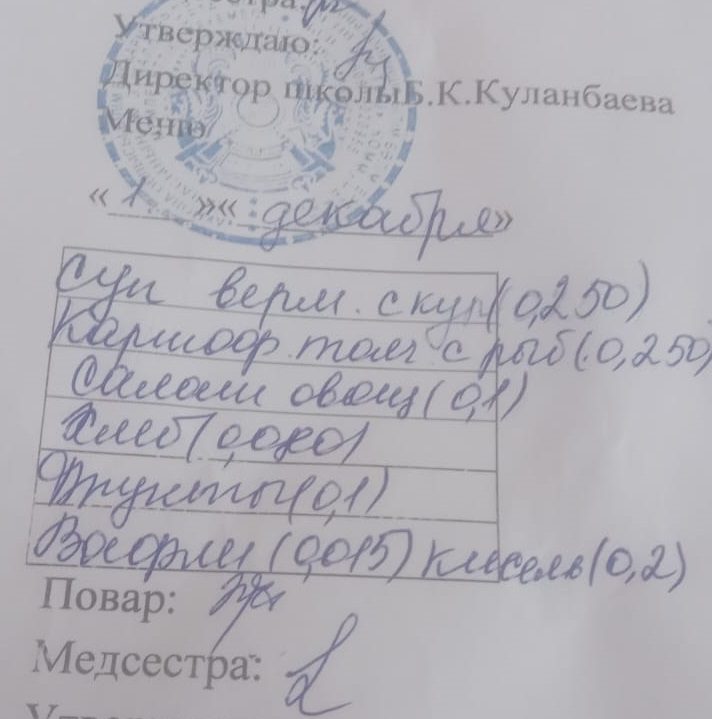 Утверждаю:
Директор школыБ.К.Куланбаева
Меню
« 1 »« декабря»
Суп верм. с кур(0,250)
Картоф. толч с рыб(0,250)
Салат овощ(0,1)
Хлеб(0,080)
Фрукты(0,1)
Вафли (0,015) кисель(0,2)
Повар:
Медсестра: